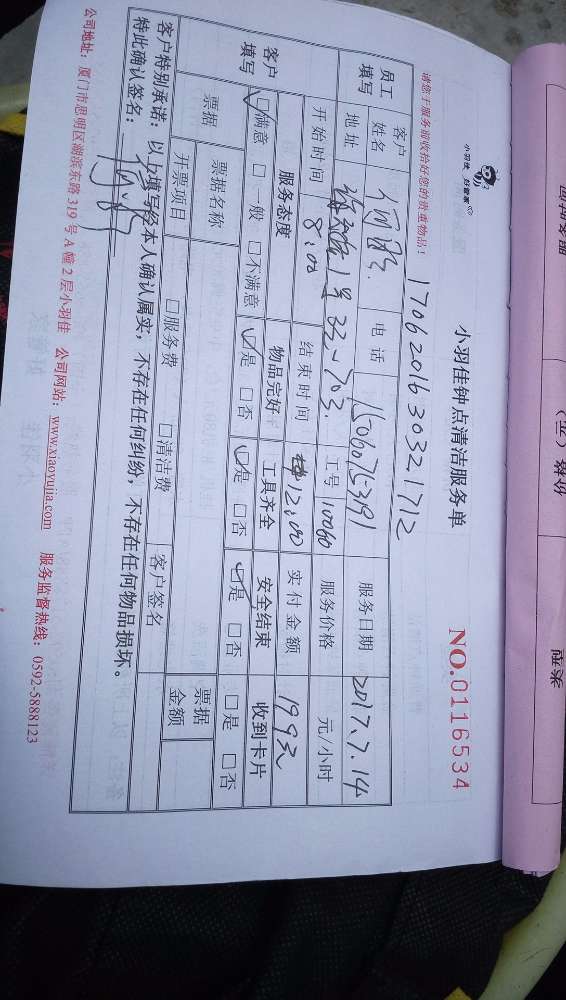 小羽佳 好管家
小羽佳钟点清洁服务单
NO.0116534
请您于服务前收拾好您的贵重物品!
1706201630321712
员工填写 客户姓名 电话 服务日期 2017.7.14
地址 33-703. 工号 10060 服务价格 元/小时
开始时间 8:00 结束时间 12:00 实付金额 199元
客户填写 服务态度 物品完好 工具齐全 安全结束 收到卡片
☑满意 □一般 □不满意 ☑是 □否 ☑是 □否 ☑是 □否 □是 □否
票据 票据名称 客户签名 票据金额
开票项目 □服务费 □清洁费
客户特别承诺:以上填写经本人确认属实,不存在任何纠纷,不存在任何物品损坏。
特此确认签名:
公司地址:厦门市思明区湖滨东路319号A幢2层小羽佳 公司网站:www.xiaoyujia.com 服务监督热线:0592-5888123